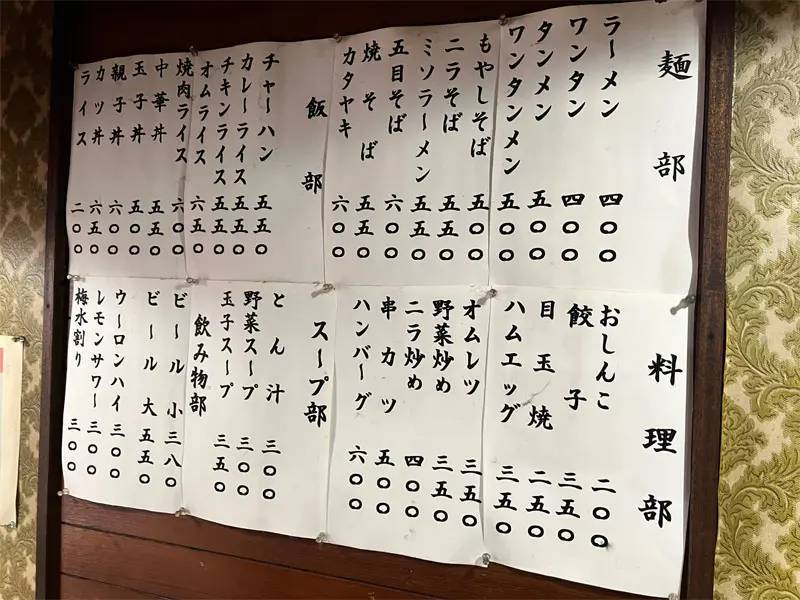 麺部
ラーメン 四〇〇
ワンタン 四〇〇
タンメン 五〇〇
ワンタンメン 五〇〇
もやしそば 五〇〇
ニラそば 五五〇
ミソラーメン 五五〇
五目そば 六〇〇
焼そば 五五〇
カタヤキ 六〇〇
飯部
チャーハン 五五〇
カレーライス 五五〇
チキンライス 五五〇
オムライス 六五〇
焼肉ライス 六〇〇
中華丼 五五〇
玉子丼 五五〇
親子丼 六〇〇
カツ丼 六五〇
ライス 二〇〇
料理部
おしんこ 二〇〇
餃子 三五〇
目玉焼 二五〇
ハムエッグ 三五〇
オムレツ 三五〇
野菜炒め 三五〇
ニラ炒め 四〇〇
串カツ 五〇〇
ハンバーグ 六〇〇
スープ部
とん汁 三〇〇
野菜スープ 三〇〇
玉子スープ 三五〇
飲み物部
ビール小 三八〇
ビール大 五五〇
ウーロンハイ 三〇〇
レモンサワー 三〇〇
梅水割り 三〇〇